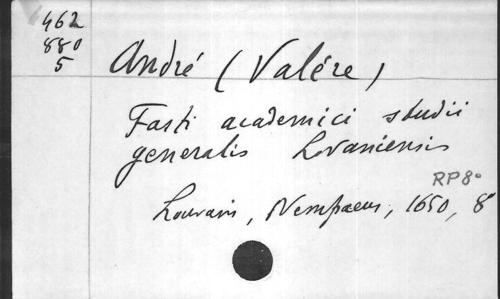 462
880
5
André (Valére)
Fasti academici studii
generalis Lovaniensis
RP8º
Louvain, Nempaeus, 1650, 8º